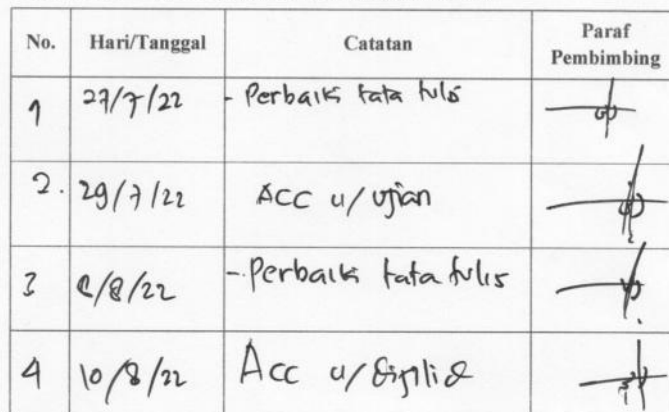 No. Hari/Tanggal Catatan Paraf Pembimbing
1 27/7/22 - Perbaiki tata tulis
2. 29/7/22 ACC u/ ujian
3 /8/22 - Perbaiki tata tulis
4 10/8/22 Acc u/